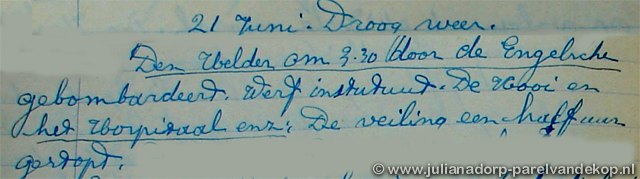 21 Juni. Droog weer.
Den Helder om 3.30 door de Engelsche
gebombardeert. Werf instutuut. De Kooi en
het Horpitaal enz. De veiling een half uur
gestopt.
© www.julianadorp-parelvandekop.nl